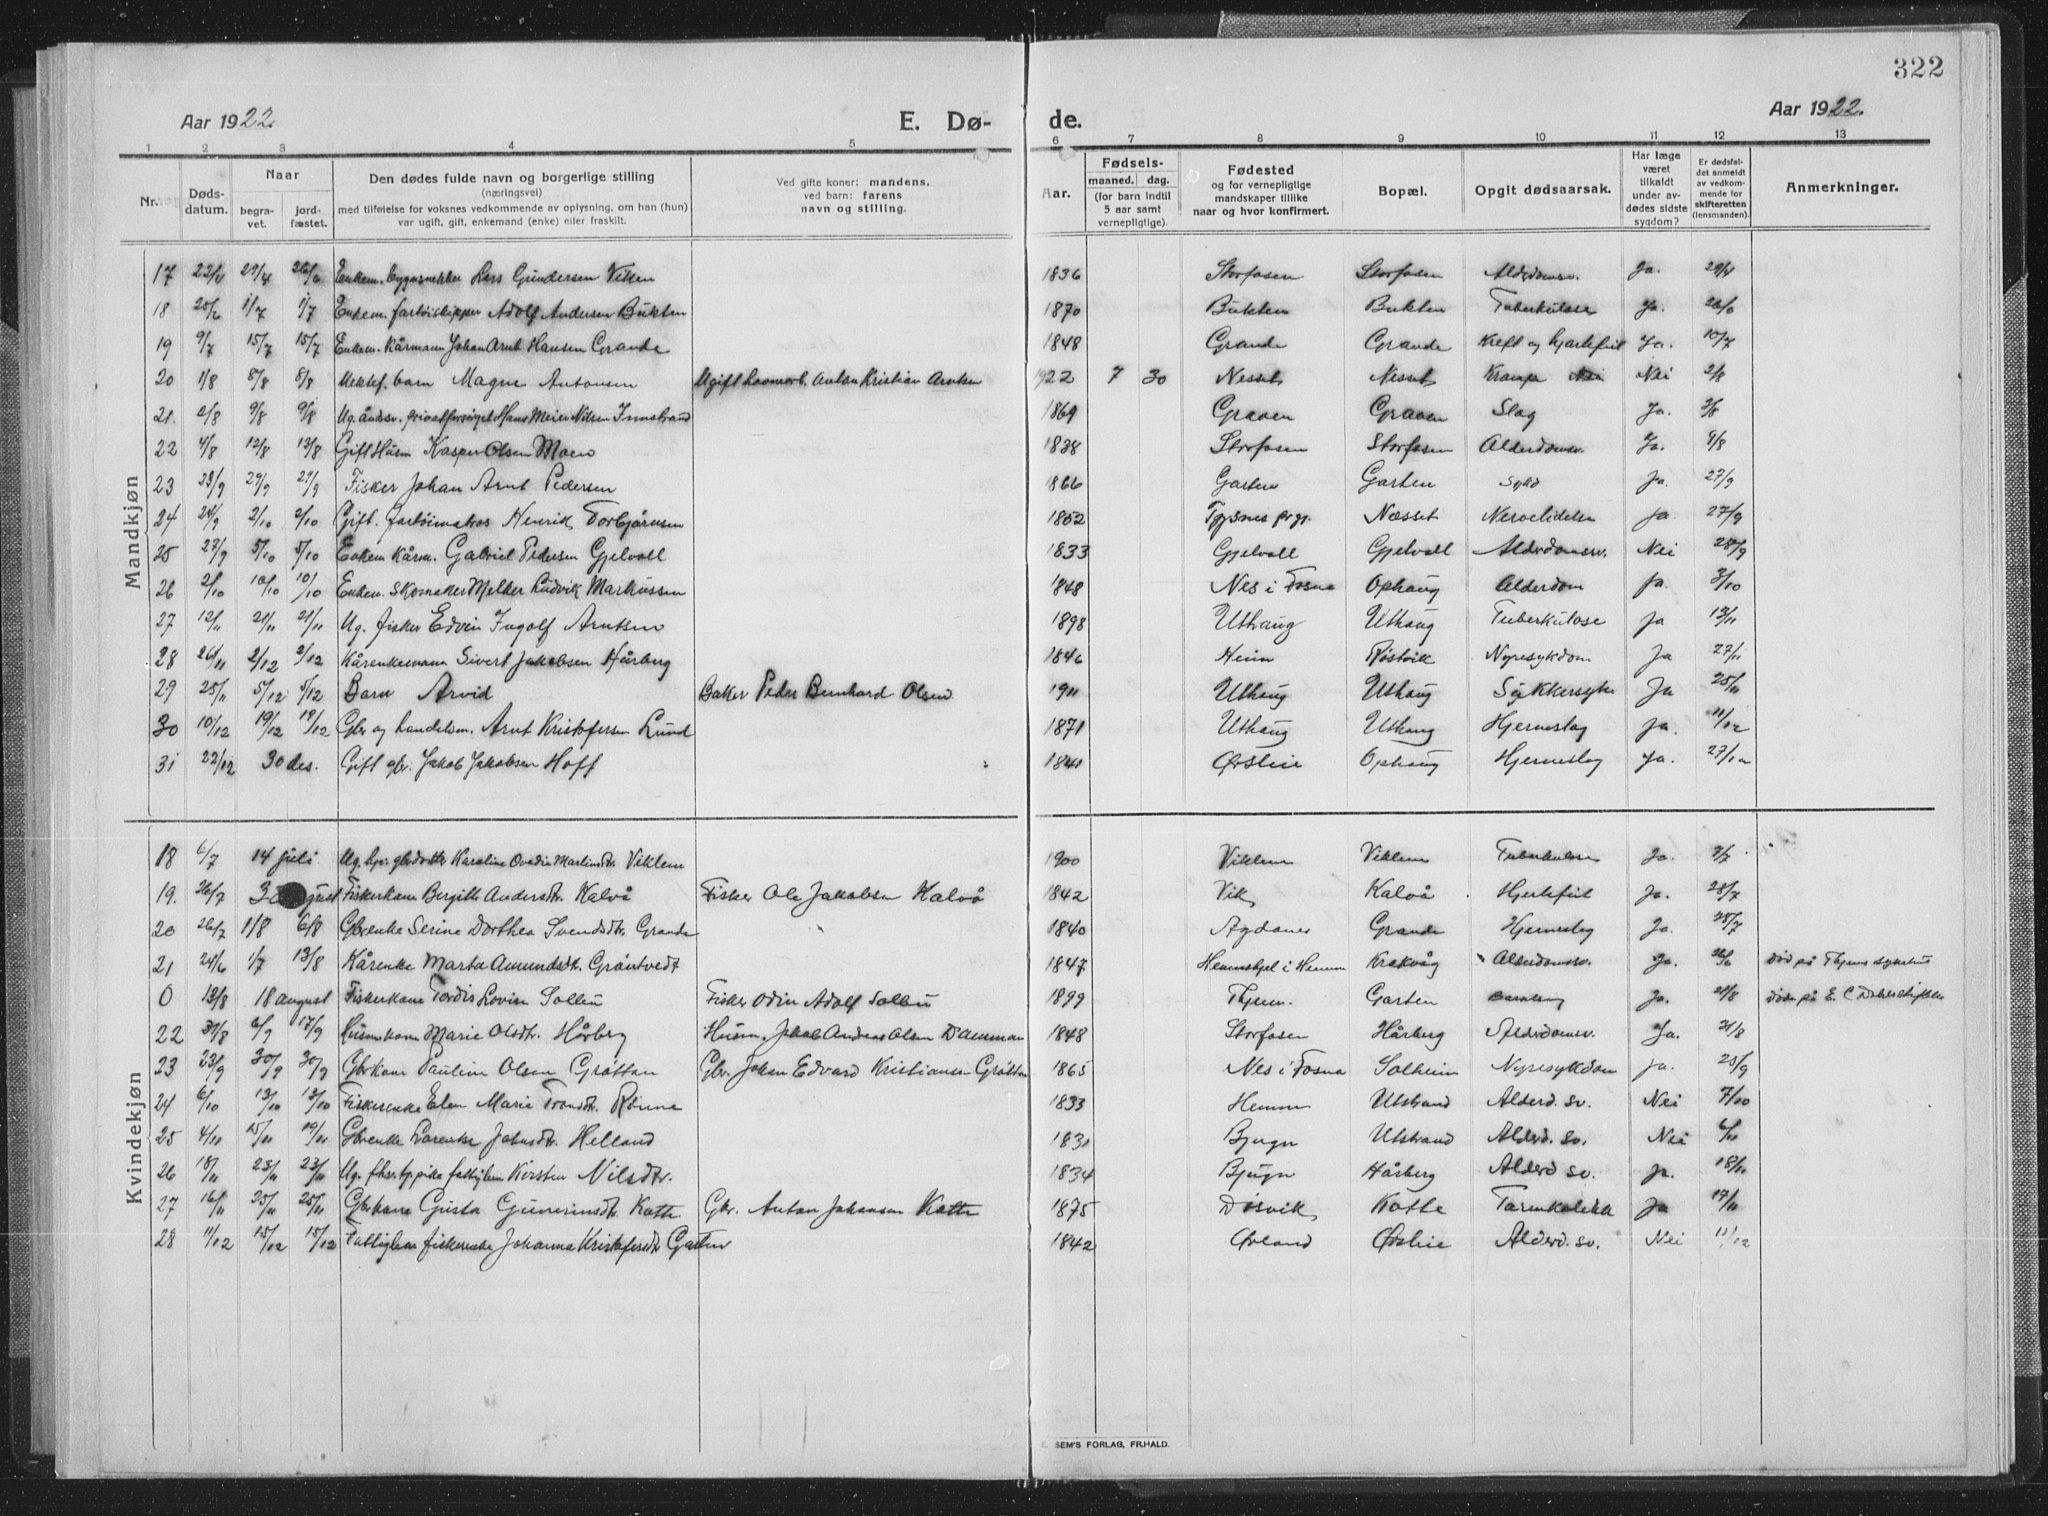 322
Aar 1922. E. Dø- de. Aar 1922.
1 2 3 4 5 6 7 8 9 10 11 12 13
Nr. Døds-datum. Naar begra-vet. jord-fæstet. Den dødes fulde navn og borgerlige stilling (næringsvei) med tilføielse for voksnes vedkommende av oplysning, om han (hun) var ugift, gift, enkemand (enke) eller fraskilt. Ved gifte koner: mandens, ved barn: farens navn og stilling. Aar. Fødsels- maaned. dag. (for barn indtil 5 aar samt vernepligtige). Fødested og for vernepligtige mandskaper tillike naar og hvor konfirmert. Bopæl. Opgit dødsaarsak. Har læge været tilkaldt under av-dødes sidste sygdom? Er dødsfal-det anmeldt av vedkom-mende for skifteretten (lensmanden). Anmerkninger.
Mandkjøn
17 Enkem. Lars Gundersen Viken 1836 Storfosen Storfosen Alderdomsv. Ja.
18 1/7 1/7 Enkem. fartøiskipper Adolf Andersen Bukten 1870 Bukten Bukten Tuberkulose Ja.
19 9/7 15/7 15/7 Enkem. Kårmann Johan Arnt Hansen Grande 1848 Grande Grande Kreft og hjertefeil Ja. 10/7
20 1/8 8/8 8/8 barn Magne Antonsen Ugift Anton Kristian Arntsen 1922 7 30 Nesset Nesset Krampe Nei 2/8
21. 2/8 9/8 9/8 Ug. Hans Meier Nilsen Innstrand 1869 Graven Graven Slag Ja.
22 4/8 12/8 13/8 Gift Husm Kasper Olsen Moen 1838 Storfosen Storfosen Alderdomsv. Ja.
23 23/9 29/9 29/9 Fisker Johan Arnt Pedersen 1866 Garten Garten Ja. 27/9
24 24/9 2/10 2/10 Gift. fartøimatros Henrik Torbjørnsen 1852 Tysnes prgj. Næsset Nervelidelse Ja 27/9
25 27/9 5/10 5/10 Enkem Kårm. Gabriel Pedersen Gjelvoll 1833 Gjelvoll Gjelvoll Alderdomsv. Nei 28/9
26 2/10 10/10 10/10 Enkem. Skomaker Melker Ludvik Markussen 1848 Nes i Fosna Ophaug Alderdom Ja. 3/10
27 12/11 21/11 21/11 Ug. fisker Edvin Ingolf Arntsen 1898 Uthaug Uthaug Tuberkulose Ja 13/11
28 26/11 2/12 2/12 Kårenkemann Sivert Jakobsen Hårberg 1846 Heim Røstvik Nyresykdom Ja 27/11
29 25/11 5/12 5/12 Barn Arvid Baker Peder Bernhard Olsen 1911 Uthaug Uthaug Sukkersyke Ja 25/11
30 10/12 19/12 19/12 Gbr og handelsm. Arnt Kristofersen Lund 1871 Uthaug Uthaug Hjerneslag Ja. 11/12
31 22/12 30 des. Gift gbr. Jakob Jakobsen Hoff 1841 Ørslie Ophaug Hjerneslag Ja. 27/12
Kvindekjøn
18 6/7 14 juli Ug. Karoline Ovedie Martinsdtr. Viklem 1900 Viklem Viklem Tuberkulose Ja. 7/7
19. 26/7 Fiskerkone Bergitte Andersdtr. Kalvå Fisker Ole Jakobsen Kalvå 1842 Vik Kalvå Hjertefeil Ja. 28/7
20 26/7 1/8 6/8 Gbrenke Serine Dorthea Svendsdtr. Grande 1840 Agdanes Grande Hjerneslag Ja. 28/7
21 24/6 1/7 13/8 Kårenke Marta Amundsdtr. Grøntvedt 1847 Hemnskjel i Hemne Krakvåg Alderdomsv. Ja. 26/6 død på Thjems sykehus
0 13/8 18 august Fiskerkone Tordis Lovise Sollie Fisker Odin Adolf Sollie 1899 Thjem. Garten Barselseng Ja.
22 31/8 6/9 17/9 Husmkone Marie Olsdtr. Hårberg Husm. Jakob Andreas Olsen Damman 1848 Storfosen Hårberg Alderdomsv. Ja. 31/8
23 23/9 30/9 30/9 Gbrkone Pauline Olsen Grøttan Gbr. Johan Edvard Kristiansen Grøttan 1865 Nes i Fosna Solheim Nyresykdom Ja. 25/9
24 6/10 13/10 13/10 Fiskerenke Elen Marie Trondtr. Rønne 1833 Hemne Utstrand Alderd. sv. Nei 7/10
25 4/11 15/11 19/11 Gbrenke Larenke Johnsdtr. Helland 1831 Bjugn Utstrand Alderd. sv. Nei 6/11
26 18/11 23/11 23/11 Ug. pike fattiglem Kirsten Nilsdtr. 1834 Bjugn Hårberg Alderd sv. Ja. 18/11
27 16/11 25/11 25/11 Gbrkone Gusta Gunerinsdtr. Kotte Gbr. Anton Johansen Kotte 1875 Døsvik Kotte Tarmkolikk Ja 17/11
28 11/12 15/12 15/12 Fattiglem fiskerenke Johanna Kristofersdtr Garten 1842 Ørland Ørslie Alderd. sv. Nei 11/12
SEM'S FORLAG, FR.HALD.